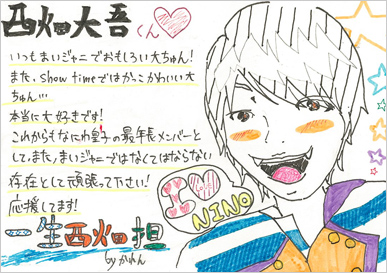 西畑大吾くん
いつもまいジャニでおもしろい大ちゅん!
また、show timeではがっこかわいい大
ちゅん…
本当に大好きです!
これからもなにわ皇子の最年長メンバーと
してまた、まいジャニーではなくてはならない
存在として頑張って下さい!
応援してます!
一生西畑担
byかれん
I
NINO